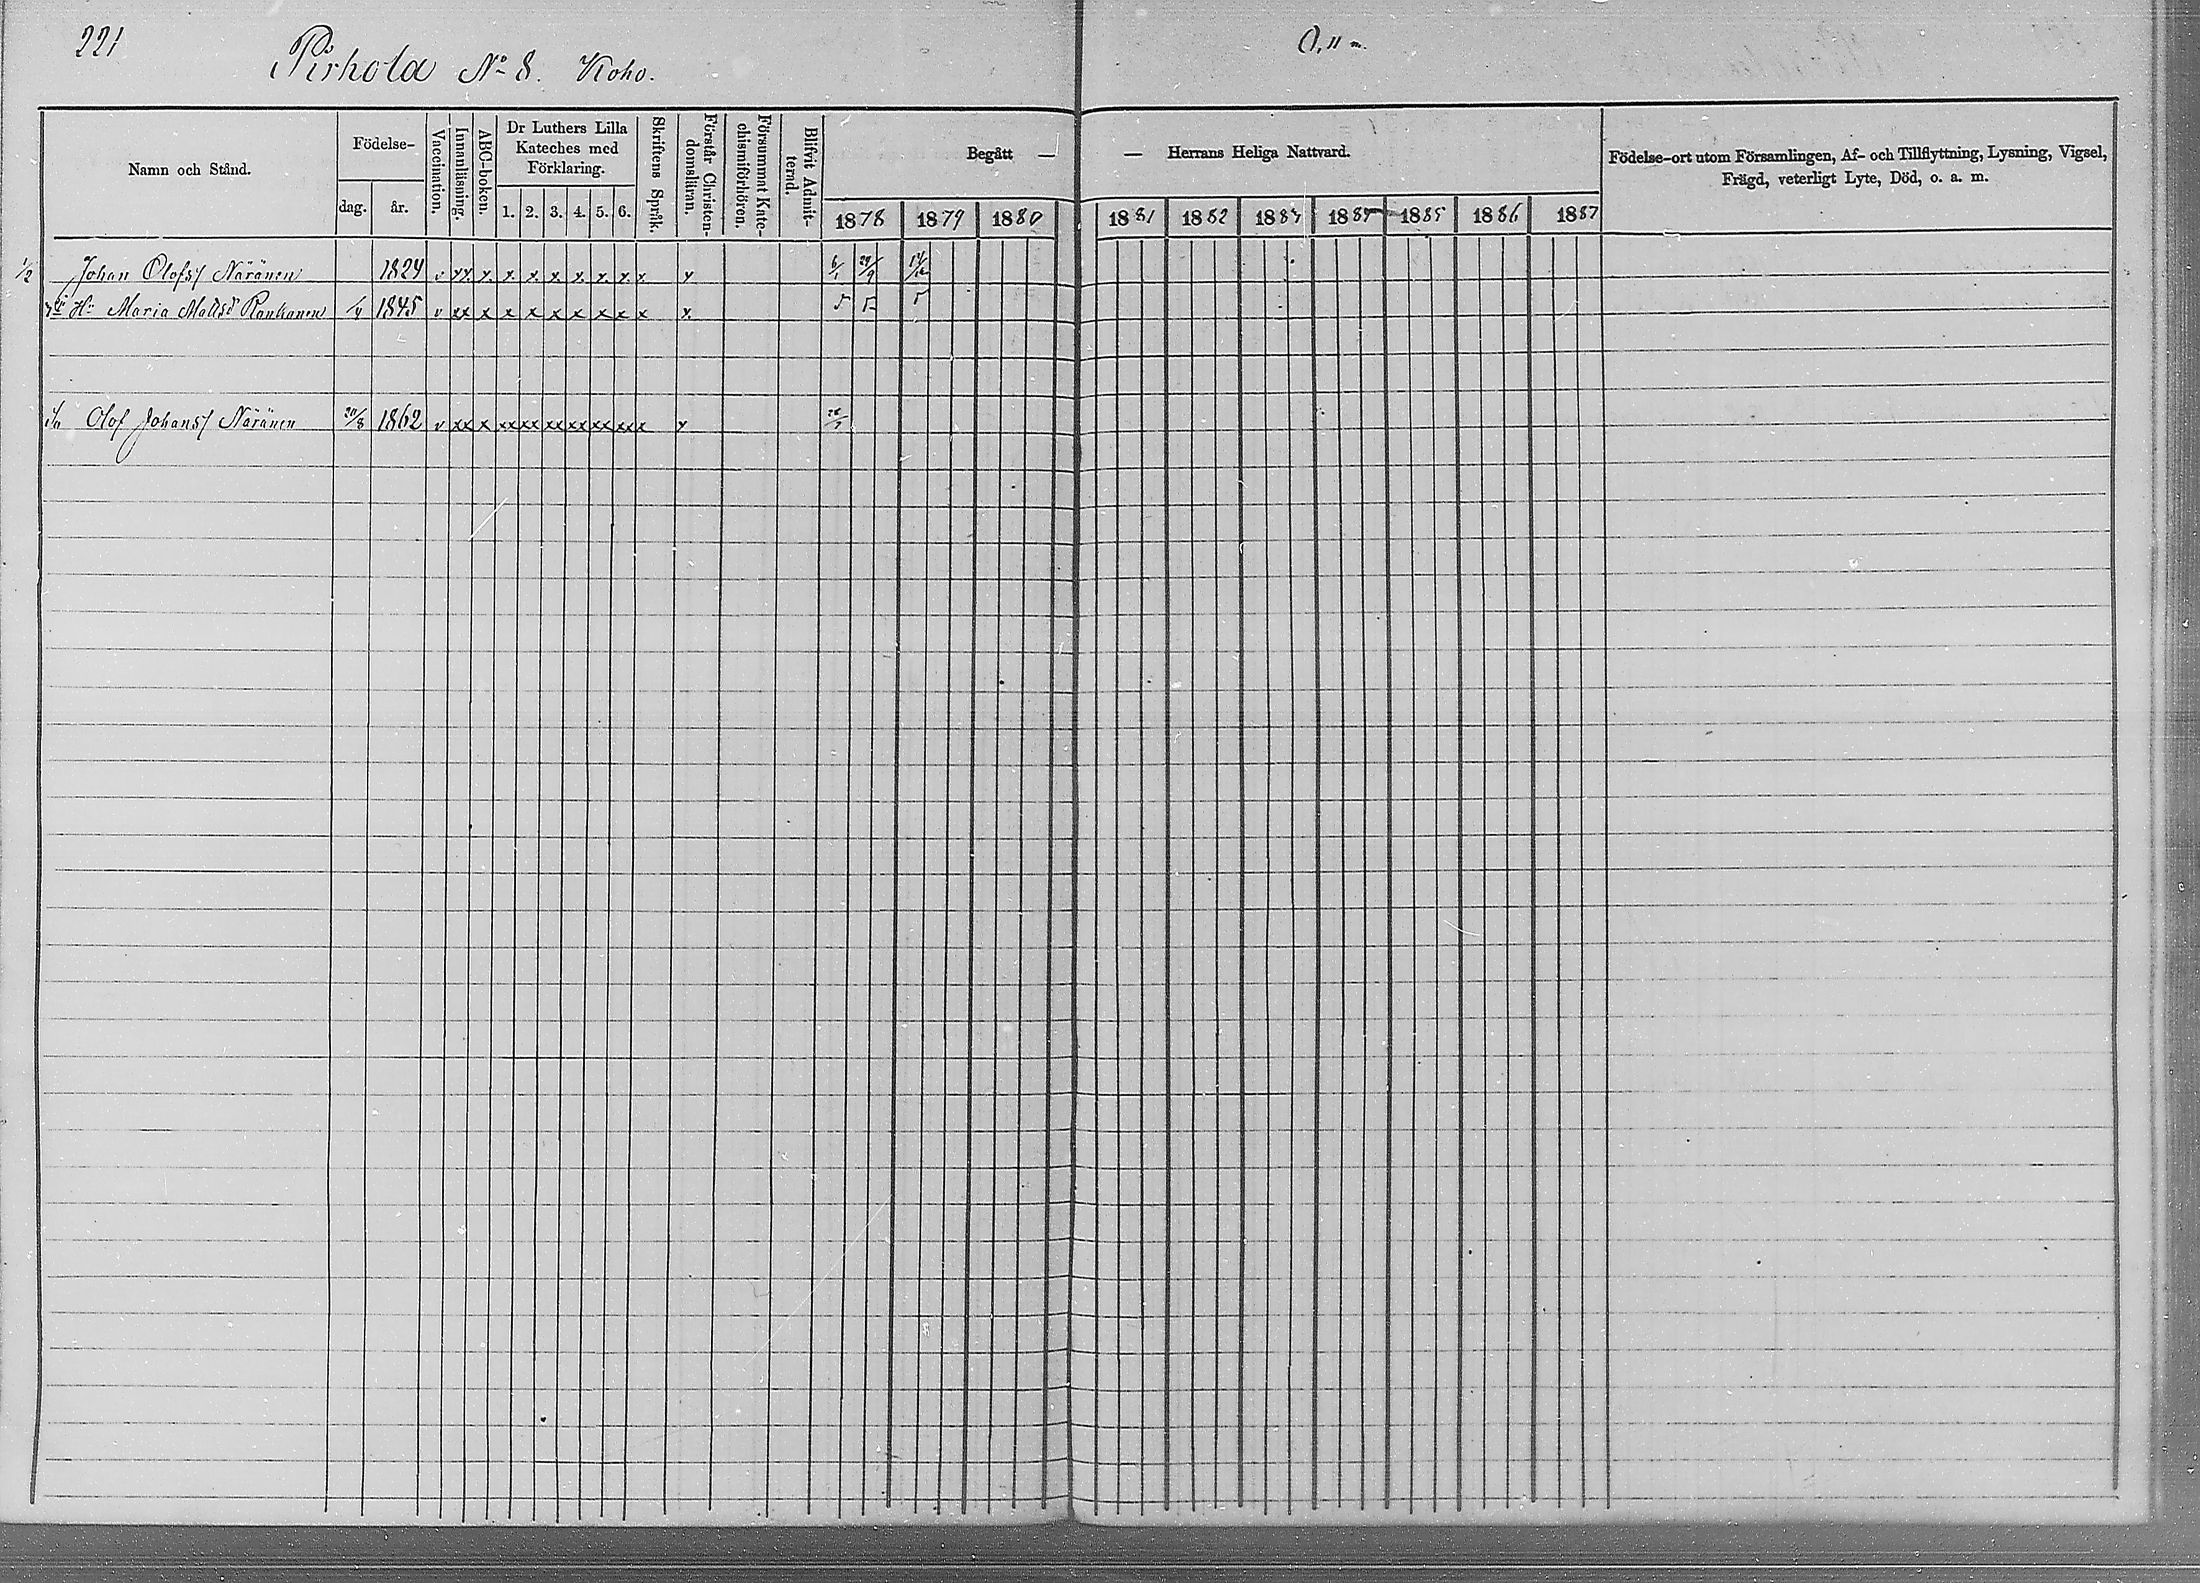 221
Pirhola No 8. Koho.
O,11 m.
Namn och Stånd.
Födelse-
dag.
år.
Vaccination.
Innanläsning.
ABC-boken.
Dr Luthers Lilla
Kateches med
Förklaring.
1. 2. 3. 4. 5. 6.
Skriftens Språk.
Förstår Christen-
domsläran.
Försummat Kate-
chismiförhören.
Blifvit Admit-
terad.
Begått —
— Herrans Heliga Nattvard.
1878 1879 1880
1881 1882 1883 1884 1885 1886 1887
Födelse-ort utom Församlingen, Af- och Tillflyttning, Lysning, Vigsel,
Frägd, veterligt Lyte, Död, o. a. m.
1/2 Johan Olofs/ Näränen 1824 v xx x x x x x x x x x 6/1 29/9
Hu Maria Mattsd 1845 v xx x x x x x x x x x
Olof Johans/ Näränen 1862 v xx x xx xx xx xx xx xx x x